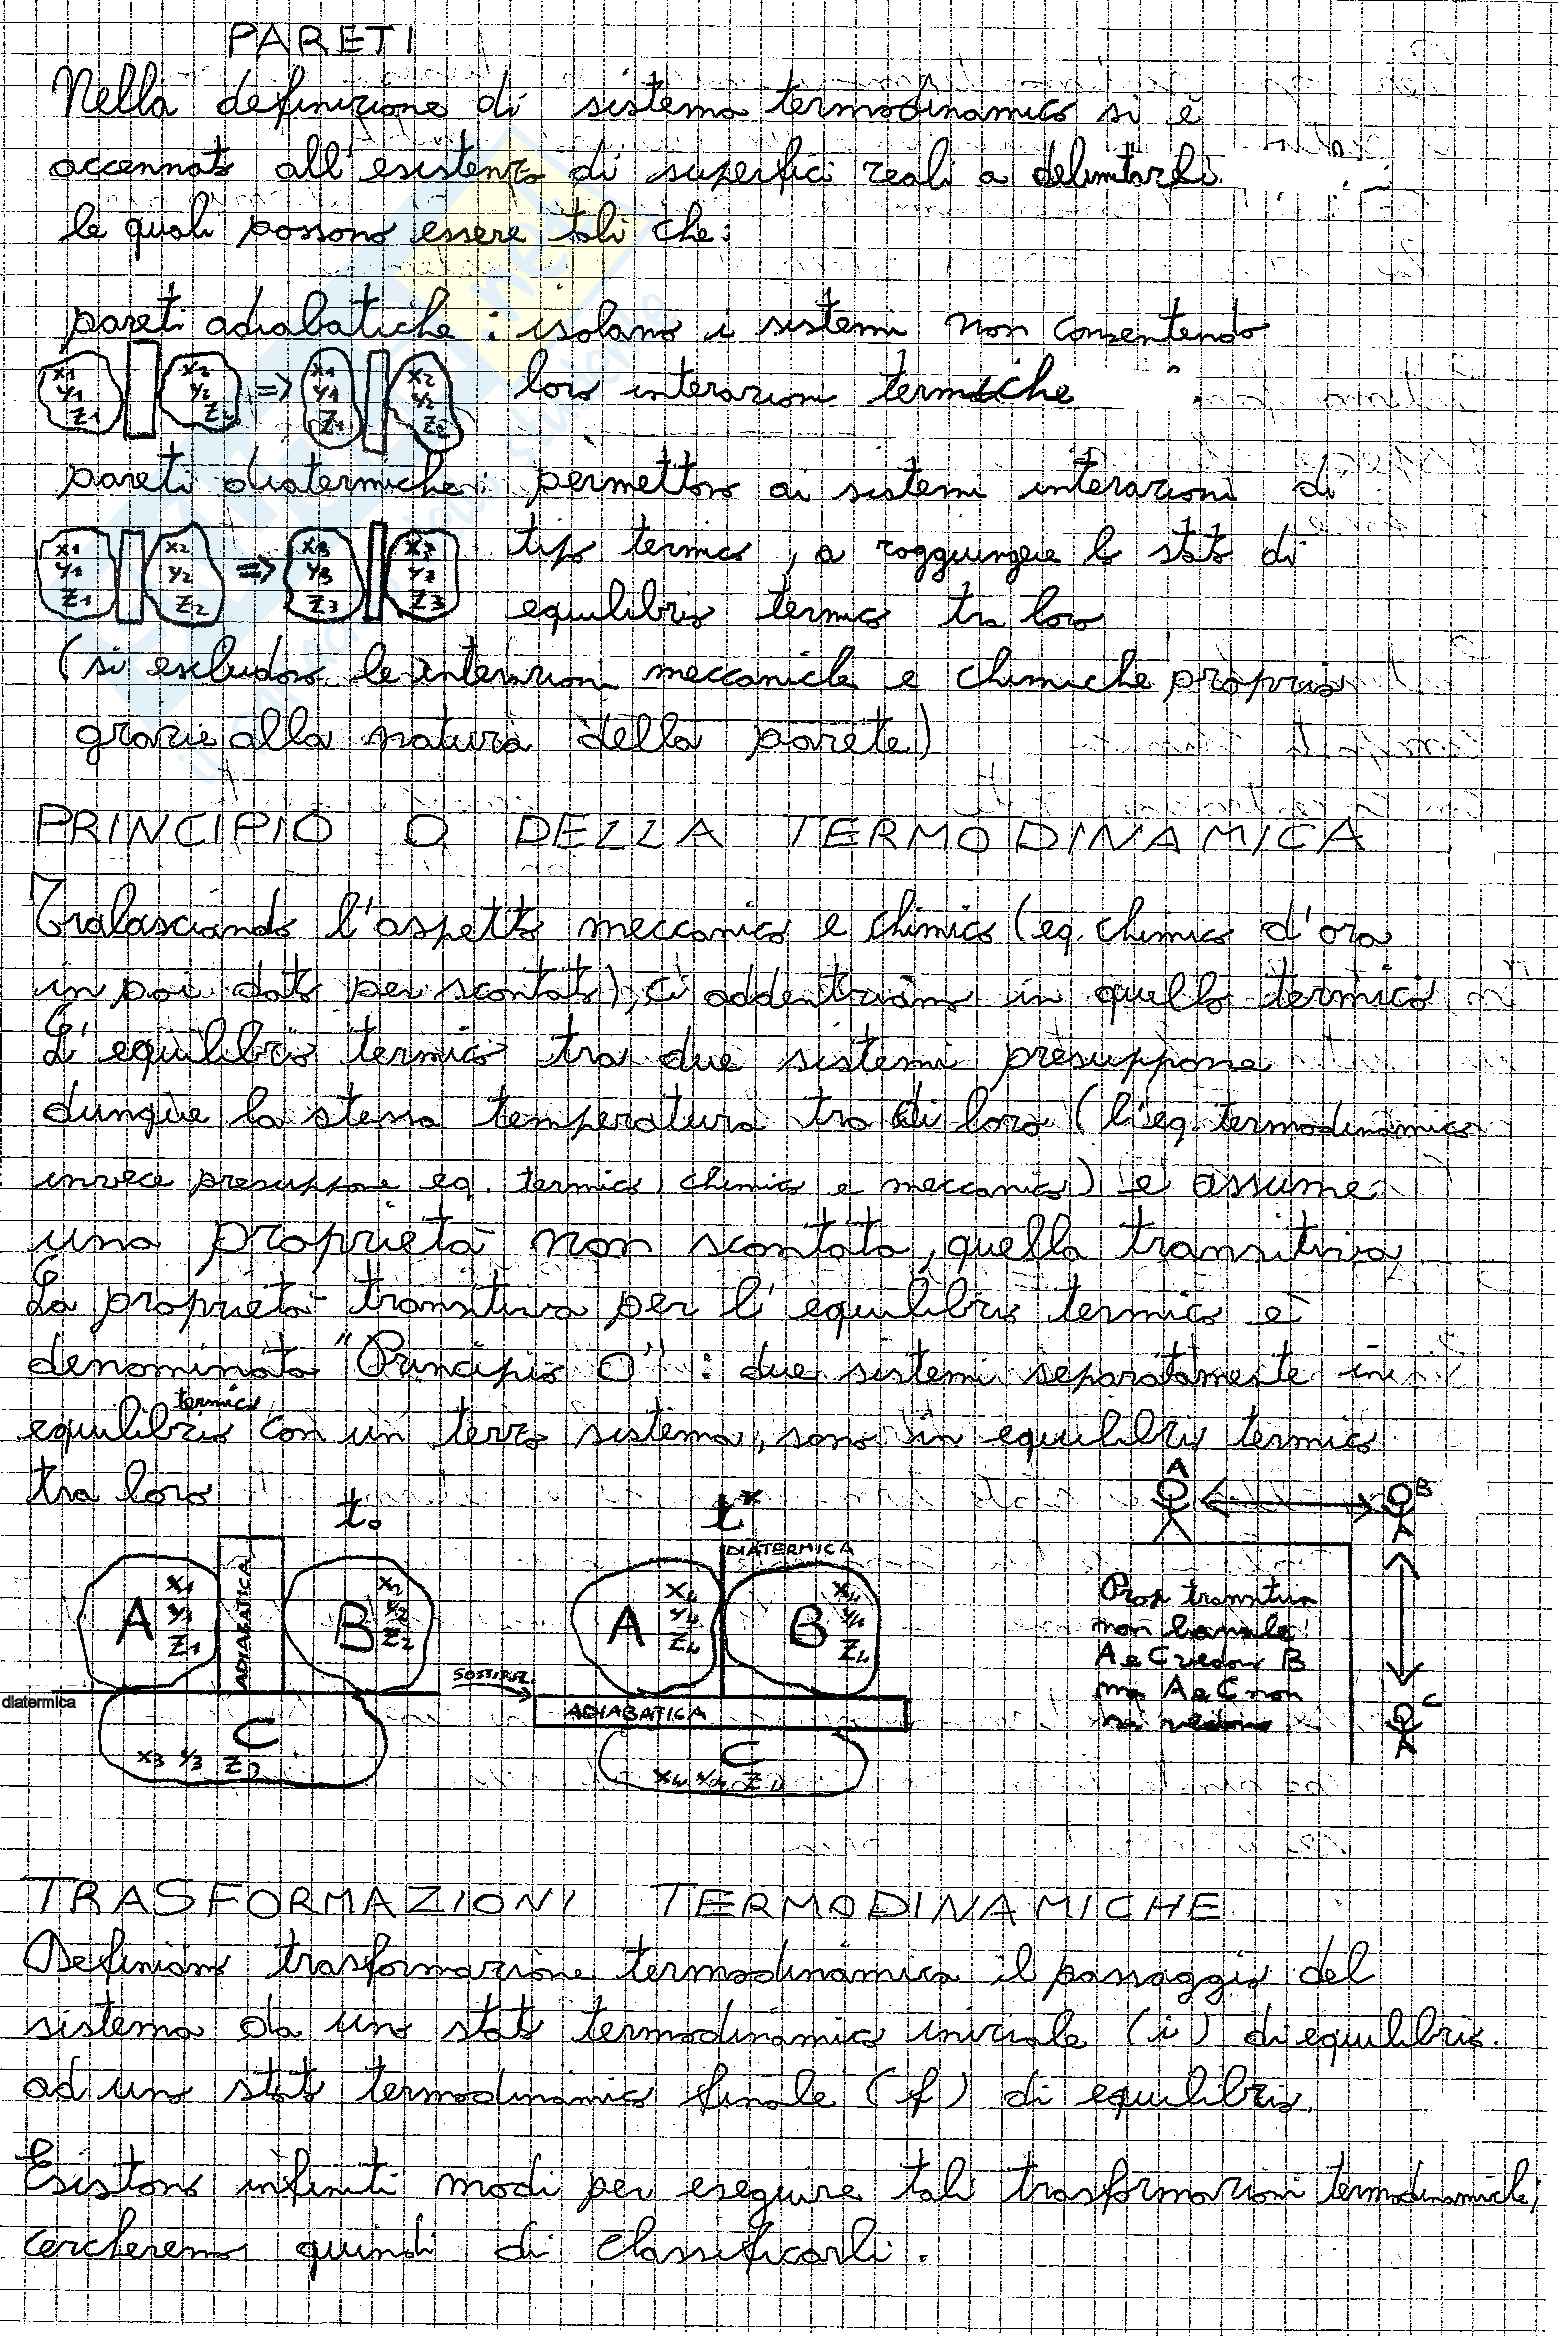 PARETI
Nella definizione di sistema termodinamico si è
accennato all'esistenza di superfici reali a delimitarli
le quali possono essere tali che:
pareti adiabatiche: isolano i sistemi non consentendo
loro interazioni termiche
x1 y1 z1 x2 y2 z2 => x1 y1 z1 x2 y2 z2
pareti diatermiche: permettono ai sistemi interazioni di
tipo termico, a raggiungere lo stato di
equilibrio termico tra loro
x1 y1 z1 x2 y2 z2 => x3 y3 z3 x3 y3 z3
(si escludono le interazioni meccaniche e chimiche proprio
grazie alla natura della parete)
PRINCIPIO 0 DELLA TERMODINAMICA
Tralasciando l'aspetto meccanico e chimico (eq. chimico d'ora
in poi dato per scontato), ci addentriamo in quello termico
L'equilibrio termico tra due sistemi presuppone
dunque la stessa temperatura tra di loro (l'eq. termodinamico
invece presuppone eq. termico, chimico e meccanico) e assume
una proprietà non scontata, quella transitiva,
La proprietà transitiva per l'equilibrio termico è
denominata "Principio 0": due sistemi separatamente in
equilibrio termico con un terzo sistema, sono in equilibrio termico
tra loro
t0 t*
A B
DIATERMICA
A x1 y1 z1 ADIABATICA B x2 y2 z2
A x4 y4 z4 B x4 y4 z4
diatermica
ADIABATICA
C x3 y3 z3
C x4 y4 z4
Prop transitiva
non banale:
A e C vedono B
ma A e C non
si vedono
C
TRASFORMAZIONI TERMODINAMICHE
Definiamo trasformazione termodinamica il passaggio del
sistema da uno stato termodinamico iniziale (i) di equilibrio
ad uno stato termodinamico finale (f) di equilibrio.
Esistono infiniti modi per eseguire tali trasformazioni termodinamiche,
cercheremo quindi di classificarli.